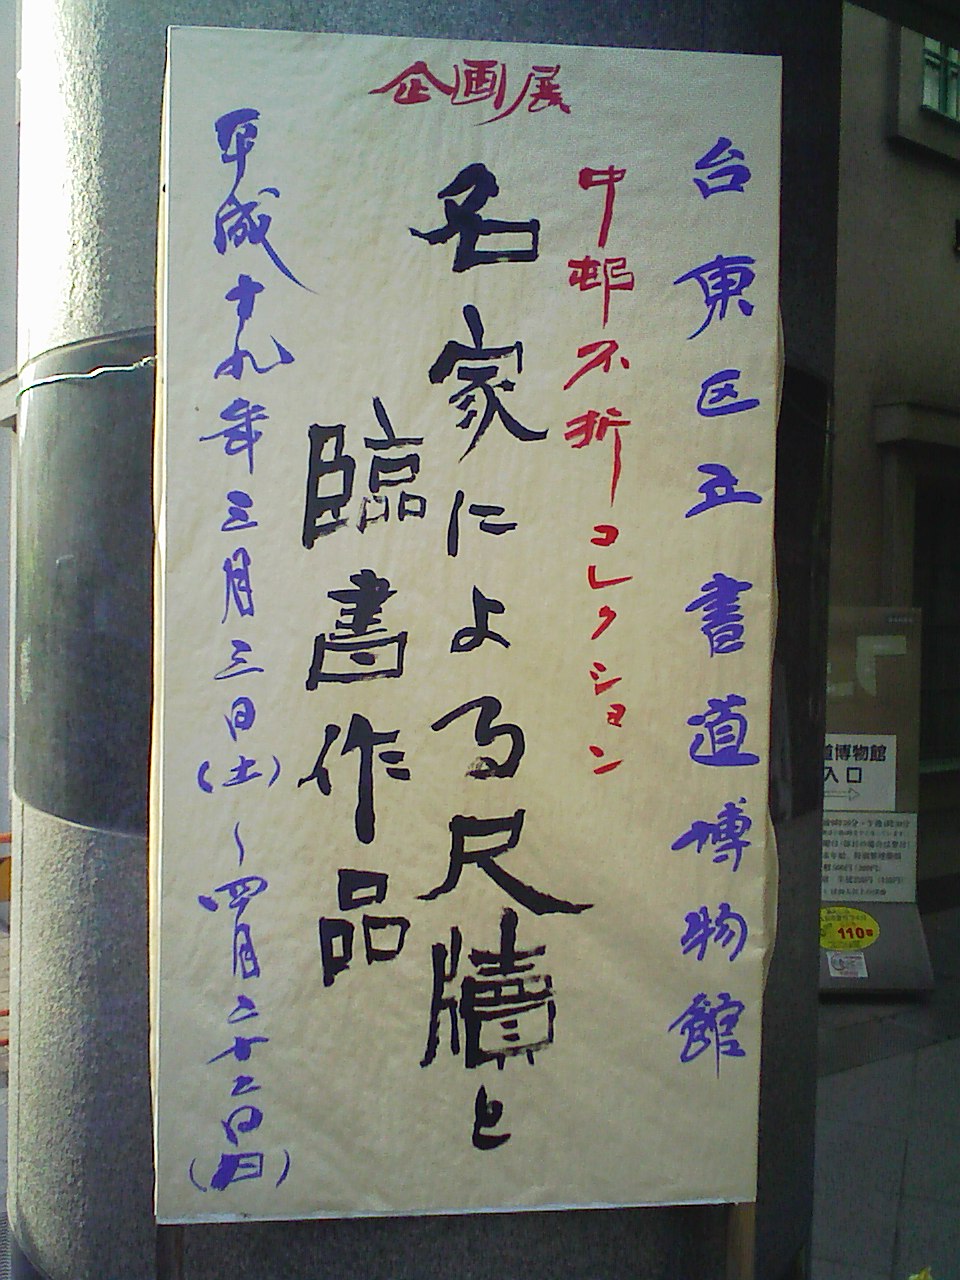 企画展
台東区立書道博物館
中村不折コレクション
名家による尺牘と
臨書作品
平成十九年三月三日(土)~四月二十二日(日)
道博物館
入口
110番